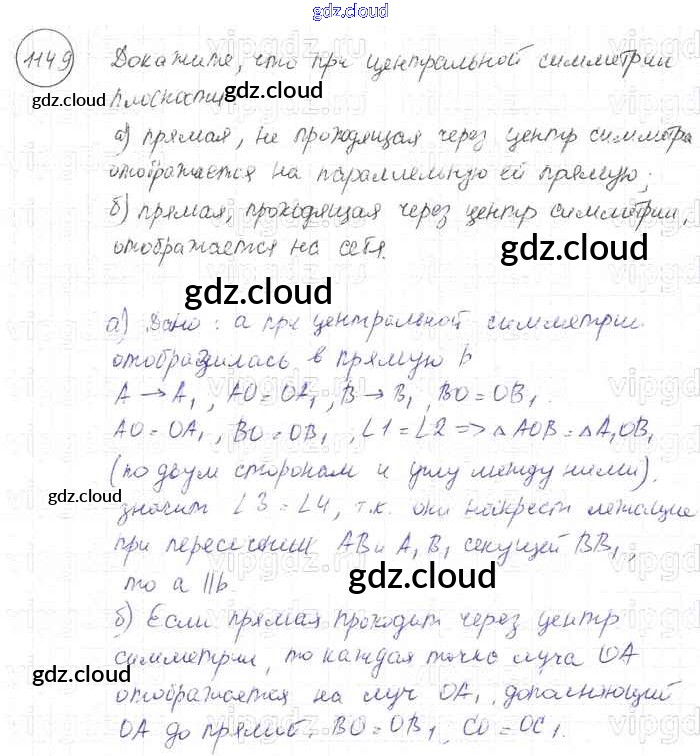 gdz.cloud
1149
Докажите, что при центральной симметрии
gdz.cloud
плоскости
gdz.cloud
а) прямая, не проходящая через центр симметри
отображается на параллельную ей прямую;
б) прямая, проходящая через центр симметрии,
отображается на себя.
gdz.cloud
gdz.cloud
а) Дано: а при центральной симметрии
отобразилась в прямую b
A → A₁, AO = OA₁; B → B₁, BO = OB₁.
AO = OA₁, BO = OB₁, ∠1 = ∠2 => △AOB = △A₁OB₁
(по двум сторонам и углу между ними),
gdz.cloud
значит ∠3 = ∠4, т.к. они накрест лежащие
при пересечении AB и A₁B₁ секущей BB₁,
то a ∥ b.
gdz.cloud
б) Если прямая проходит через центр
симметрии, то каждая точка луча OA
gdz.cloud
отображается на луч OA₁, дополняющий
OA до прямой. BO = OB₁, CO = OC₁.
gdz.cloud
vipgdz